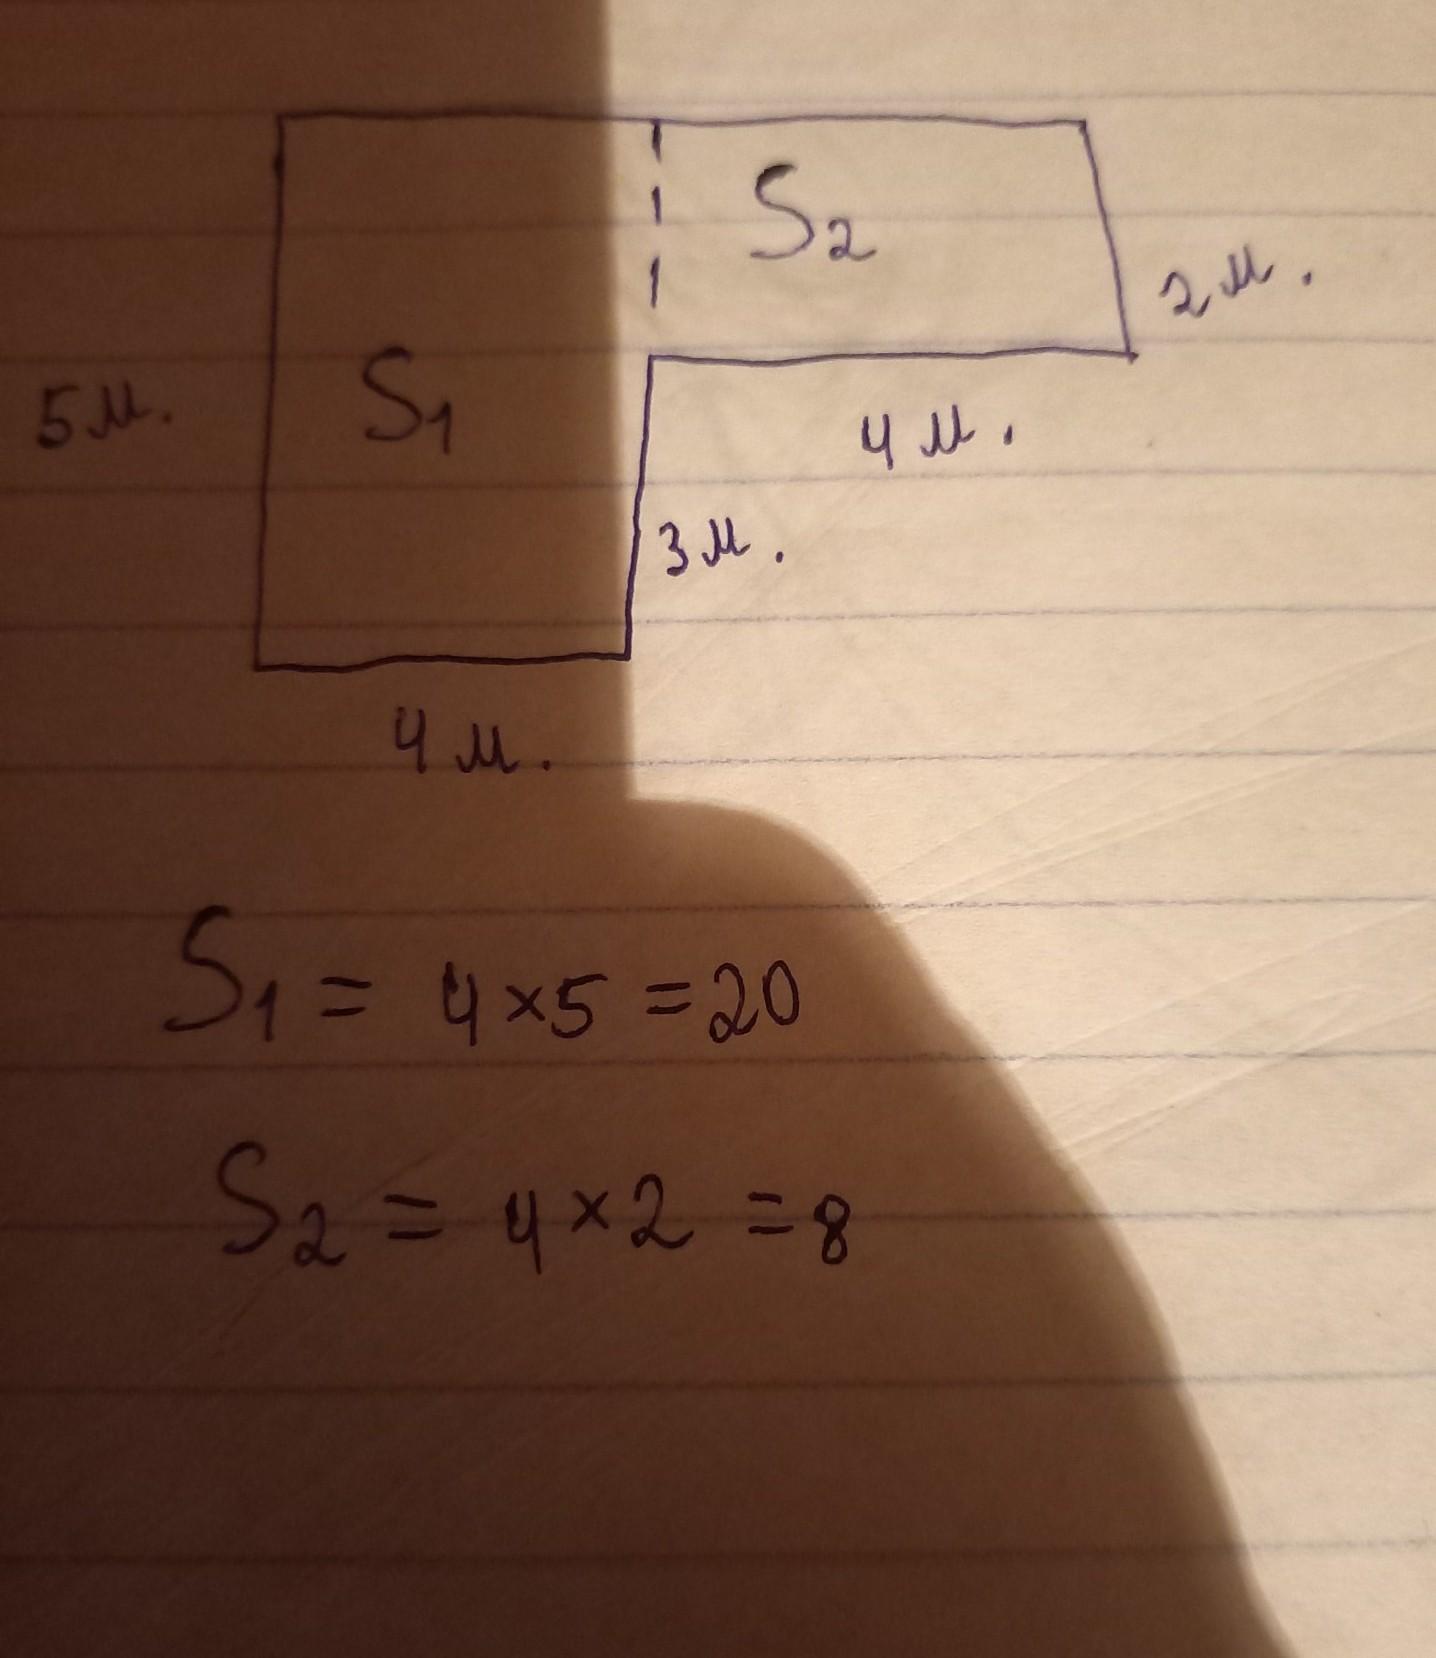 S₂
2 м.
5 м.
S₁
4 м.
3 м.
4 м.
S₁ = 4 × 5 = 20
S₂ = 4 × 2 = 8